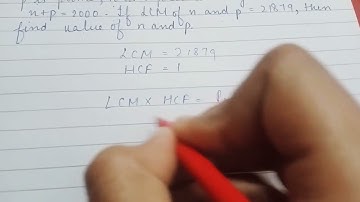 n+p = 2000. If LCM of n and p = 21879, then
find value of n and p.
LCM = 21879
HCF = 1
LCM × HCF =